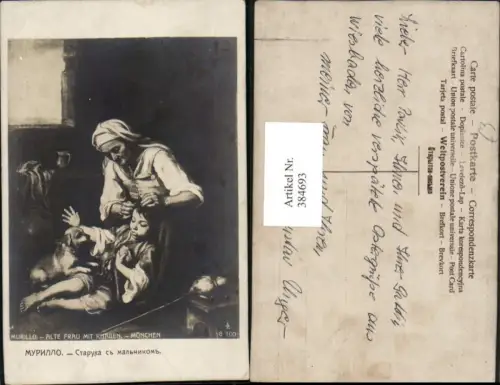 MURILLO. – ALTE FRAU MIT KNABEN. – MÜNCHEN
МУРИЛЛО. — Старуха съ мальчикомъ.
Carte postale – Postkarte – Correspondenzkarte
Cartolina postale – Dopisnice – Levelező-Lap – Karta korespondencyjna
Brefkort - Union postale universelle - Unione postale universale - Post Card
Tarjeta postal – Weltpostverein – Brefkort – Brevkort
Открытое письмо
Artikel Nr.
384693
Liebe Herr und Ihre
viele herzliche verspätete Ostergrüße aus
Wiesbaden von
meiner Frau und Ihrem